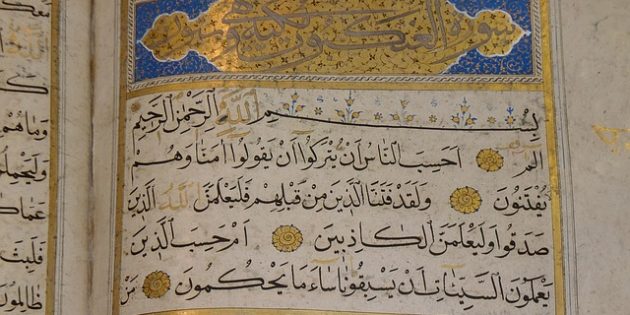 سورة العنكبوت
بِسْمِ اللَّهِ الرَّحْمٰنِ الرَّحِيمِ
الم اَحَسِبَ النَّاسُ اَنْ يُتْرَكُوا اَنْ يَقُولُوا اٰمَنَّا وَهُمْ
يُفْتَنُونَ وَلَقَدْ فَتَنَّا الَّذِينَ مِنْ قَبْلِهِمْ فَلَيَعْلَمَنَّ اللَّهُ الَّذِينَ
صَدَقُوا وَلَيَعْلَمَنَّ الْكَاذِبِينَ اَمْ حَسِبَ الَّذِينَ
يَعْمَلُونَ السَّيِّئَاتِ اَنْ يَسْبِقُونَا سَاءَ مَا يَحْكُمُونَ مَنْ
وَمَاهُمْ
فَلَبِثَ
ظَالِمُونَ